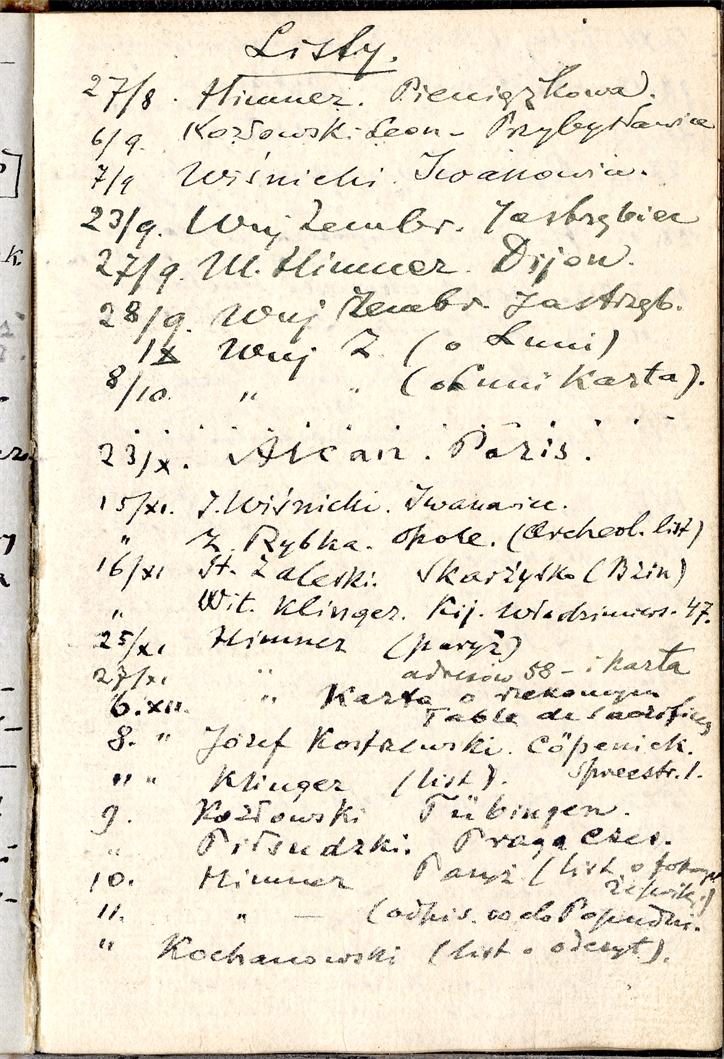 Listy.
27/8. Himner. Pieniążkowa.
6/9. Kozłowski Leon - Przybysławice
7/9 Wiśnicki. Iwanowice.
23/9. Wuj Zembr. Jastrzębiec
27/9. M. Himner. Dijon.
28/9. Wuj Zembr. Jastrzęb.
1X Wuj Z. (o Luni)
8/10. " " (o Luni Karta).
23/X. Alcan. Paris.
15/XI. J. Wiśnicki. Iwanowic.
" Z. Rybka. Opole. (Archeol. list)
16/XI St. Zaleski. Skarżysko (Bzin)
" Wit. Klinger. Kij. Włodzimiers. 47.
25/XI Himner (paryż)
27/XI. " adresów 58 - i Karta
6.XII. " Karta o rzekomym
Table de sacrifices
8. " Józef Kostrzewski. Cöpenick.
" " Klinger (list). Spreestr. 1.
9. Kozłowski Tübingen.
" Piłsudzki. Praga Czes.
10. Himner Paryż (list o
11. " — (odpis.
" Kochanowski (list o odczyt).